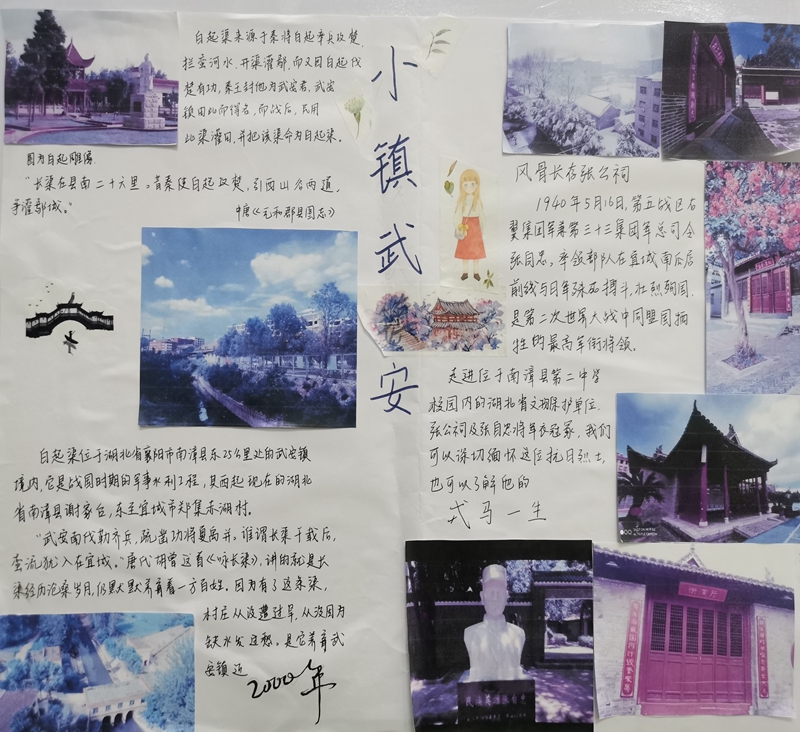 小镇武安
白起渠来源于秦将白起率兵攻楚,
拦蛮河水,开渠灌鄢,而又因白起伐
楚有功,秦王封他为武安君,武安
镇由此而得名,而战后,民用
此渠灌田,并把该渠命为白起渠。
图为白起雕像
“长渠在县南二十六里。昔秦使白起攻楚,引西山谷两道,
争灌鄢城。”
中唐《元和郡县图志》
白起渠位于湖北省襄阳市南漳县东25公里处的武安镇
境内,它是战国时期的军事水利工程,其西起现在的湖北
省南漳县谢家台,东至宜城市郑集赤湖村。
“武安南伐勒齐兵,疏凿功将夏禹并。谁谓长渠千载后,
蛮流犹入在宜城。”唐代胡曾这首《咏长渠》,讲的就是长
渠经历沧桑岁月,仍默默养育着一方百姓。因为有了这条渠,
村庄从没遭过旱,从没因为
缺水发过愁。是它养育武
安镇近
2000年
风骨长存张公祠
1940年5月16日,第五战区右
翼集团军兼第三十三集团军总司令
张自忠,率领部队在宜城南瓜店
前线与日军殊死搏斗,壮烈殉国,
是第二次世界大战中同盟国牺
牲的最高军衔将领。
走进位于南漳县第二中学
校园内的湖北省文物保护单位,
张公祠及张自忠将军衣冠冢,我们
可以深切缅怀这位抗日烈士,
也可以了解他的
戎马一生